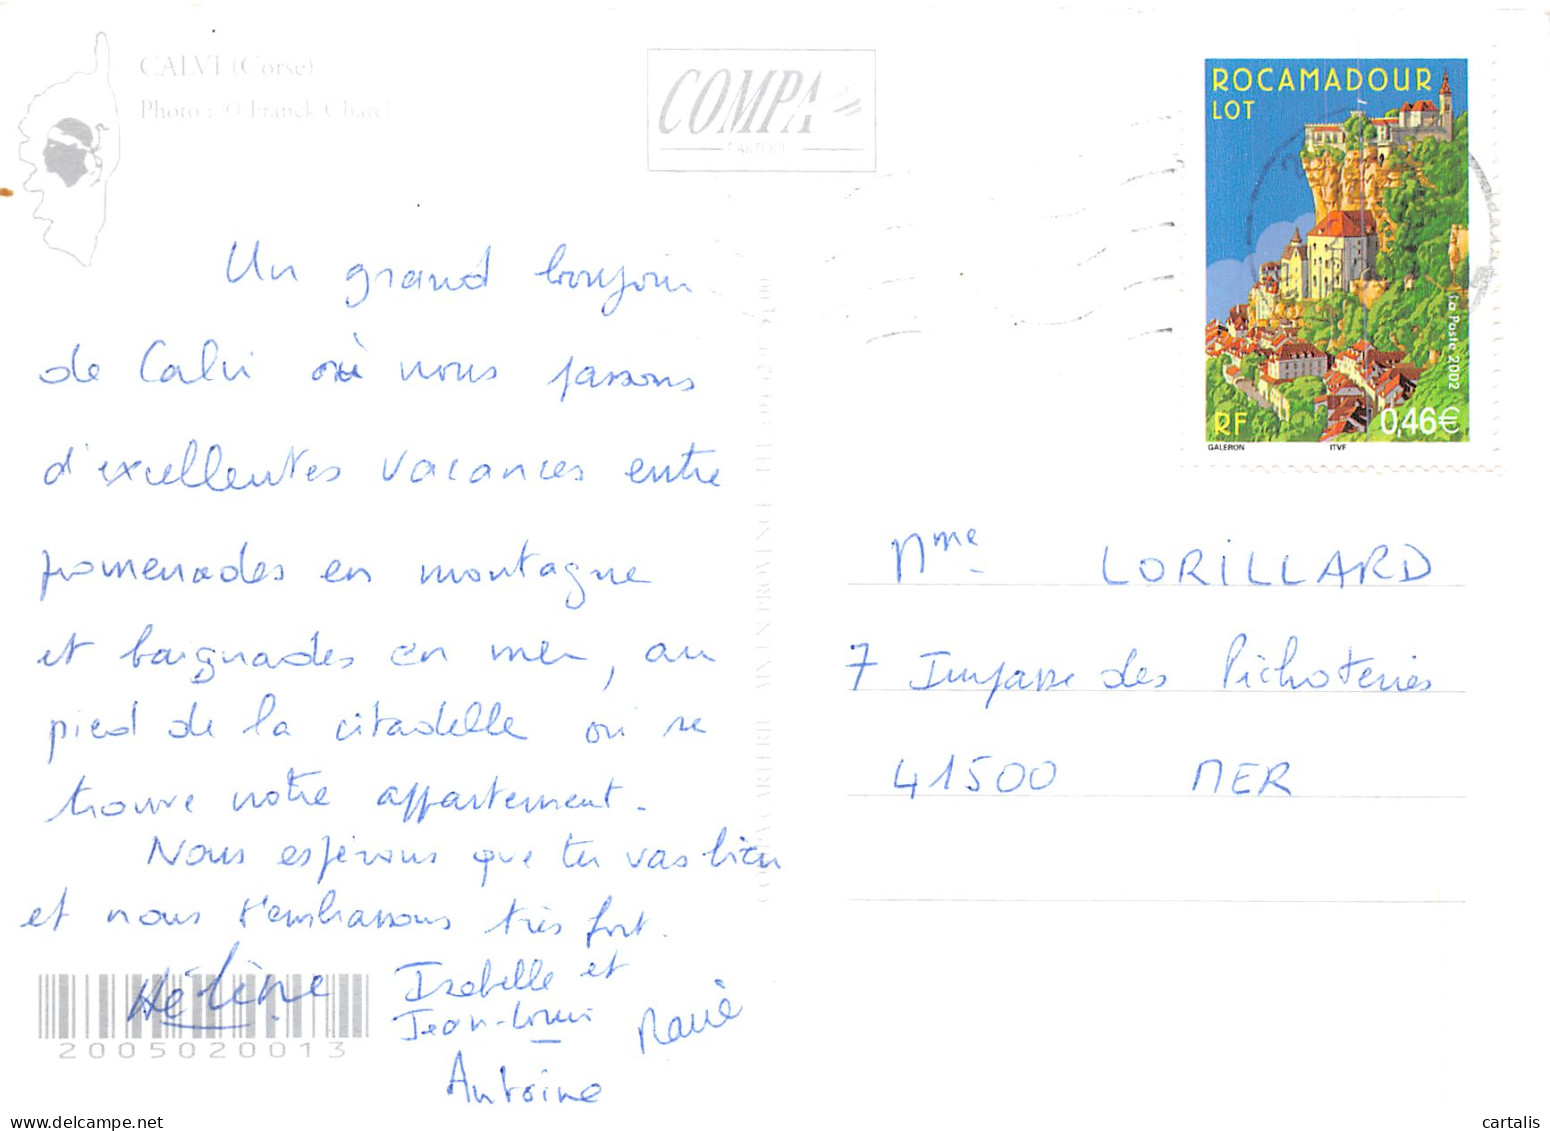 CALVI (Corse)
Photo : © Franck Charel
COMPA
CARTERIE
ROCAMADOUR
LOT
La Poste 2002
RF
0,46€
GALERON
ITVF
Un grand bonjour
de Calvi où nous passons
d'excellentes vacances entre
promenades en montagne
et baignades en mer, au
pied de la citadelle où se
trouve notre appartement.
Nous espérons que tu vas bien
et nous t'embrassons très fort.
Hélène
Isabelle et
Jean-Louis
Marie
Antoine
2005020013
AIX EN PROVENCE
Mme LORILLARD
7 Impasse des Pichoteries
41500 MER
cartalis